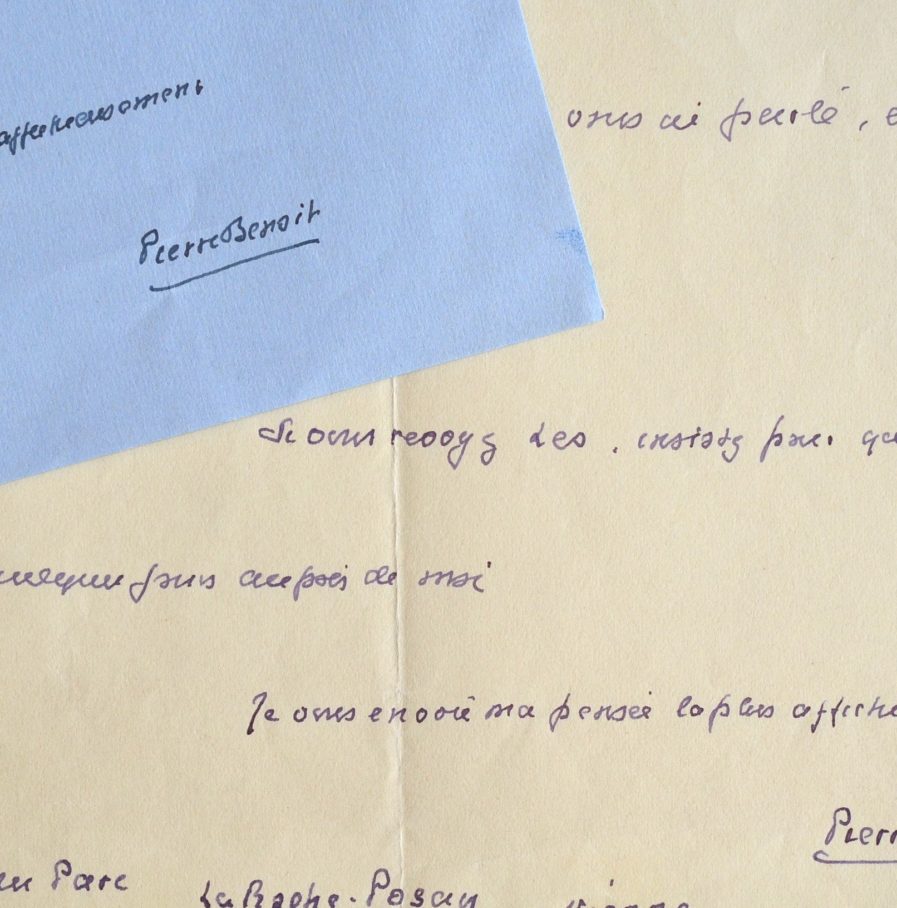 affectueusement
Pierre Benoit
vous ai parlé, e
Si vous voyez Léo, insistez pour qu
quelques jours auprès de moi
Je vous envoie ma pensée la plus affectue
Pierr
du Parc
La Roche-Posay Vienne